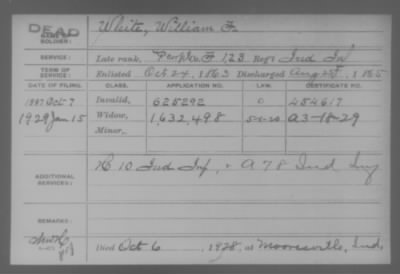 DEAD
NAME OF SOLDIER: White, William F.
SERVICE: Late rank, Co. F, 123 Regt Ind Inf
TERM OF SERVICE: Enlisted Oct 24, 1863 Discharged Aug 25, 1865
DATE OF FILING. CLASS. APPLICATION NO. LAW. CERTIFICATE NO.
1887 Oct 7 Invalid, 625292 O 484617
1929 Jan 15 Widow, 1,632,498 5-1-20 A3-18-29
Minor,
ADDITIONAL SERVICES: K 10 Ind Inf, + A 78 Ind Inf
REMARKS:
Died Oct 6, 1928, at Mooresville, Ind.